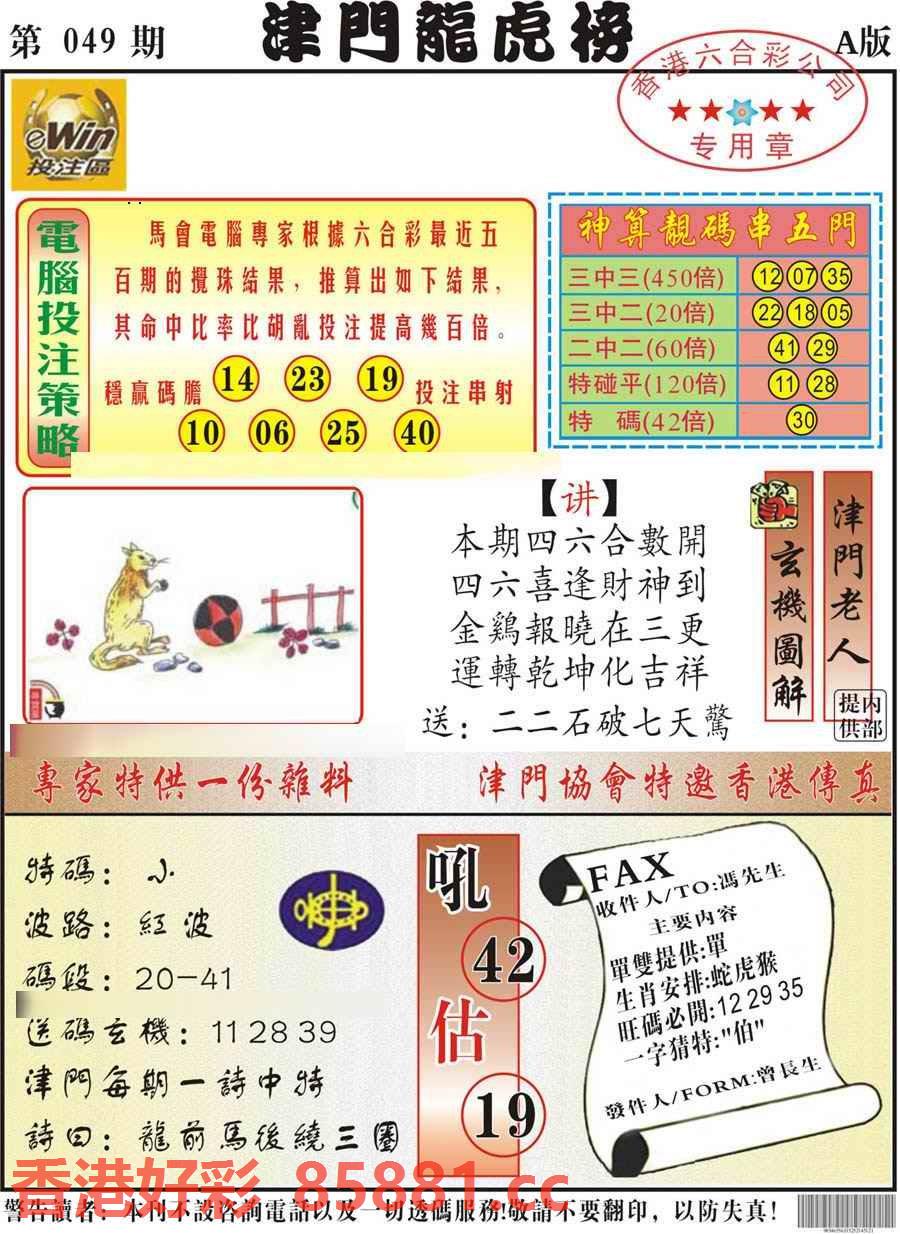 第 049 期
津門龍虎榜
A版
香港六合彩公司
专用章
eWin
投注區
電腦投注策略
馬會電腦專家根據六合彩最近五
百期的攪珠結果，推算出如下結果，
其命中比率比胡亂投注提高幾百倍。
穩贏碼膽 14 23 19 投注串射
10 06 25 40
神算靚碼串五門
三中三(450倍) 12 07 35
三中二(20倍) 22 18 05
二中二(60倍) 41 29
特碰平(120倍) 11 28
特 碼(42倍) 30
【讲】
本期四六合數開
四六喜逢財神到
金鷄報曉在三更
運轉乾坤化吉祥
送：二二石破七天驚
玄機圖解
津門老人
内部提供
專家特供一份雜料
津門協會特邀香港傳真
特碼：小
波路：紅波
碼段：20-41
送碼玄機：11 28 39
津門每期一詩中特
詩曰：龍前馬後繞三圈
吼
42
估
19
FAX
收件人/TO:馮先生
主要内容
單雙提供:單
生肖安排:蛇虎猴
旺碼必開:12 29 35
一字猜特:"伯"
發件人/FORM:曾長生
香港好彩 85881.cc
警告讀者：本刊不設咨詢電話以及一切透碼服務!敬請不要翻印，以防失真!